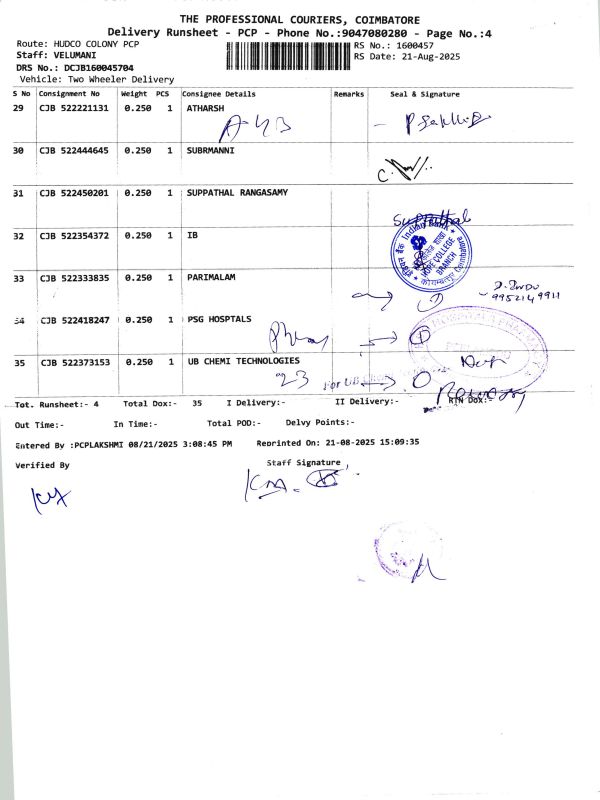 THE PROFESSIONAL COURIERS, COIMBATORE
Delivery Runsheet - PCP - Phone No.:9047080280 - Page No.:4
Route: HUDCO COLONY PCP
RS No.: 1600457
Staff: VELUMANI
RS Date: 21-Aug-2025
DRS No.: DCJB160045704
Vehicle: Two Wheeler Delivery
S No Consignment No Weight PCS Consignee Details Remarks Seal & Signature
29 CJB 522221131 0.250 1 ATHARSH
30 CJB 522444645 0.250 1 SUBRMANNI
31 CJB 522450201 0.250 1 SUPPATHAL RANGASAMY
Suppathal
32 CJB 522354372 0.250 1 IB
Indian Bank
HOPE COLLEGE BRANCH
Coimbatore
33 CJB 522333835 0.250 1 PARIMALAM
9952149911
34 CJB 522418247 0.250 1 PSG HOSPTALS
35 CJB 522373153 0.250 1 UB CHEMI TECHNOLOGIES
23 For UB
Tot. Runsheet:- 4 Total Dox:- 35 I Delivery:- II Delivery:- RTN Dox:-
Out Time:- In Time:- Total POD:- Delvy Points:-
Entered By :PCPLAKSHMI 08/21/2025 3:08:45 PM Reprinted On: 21-08-2025 15:09:35
Verified By Staff Signature